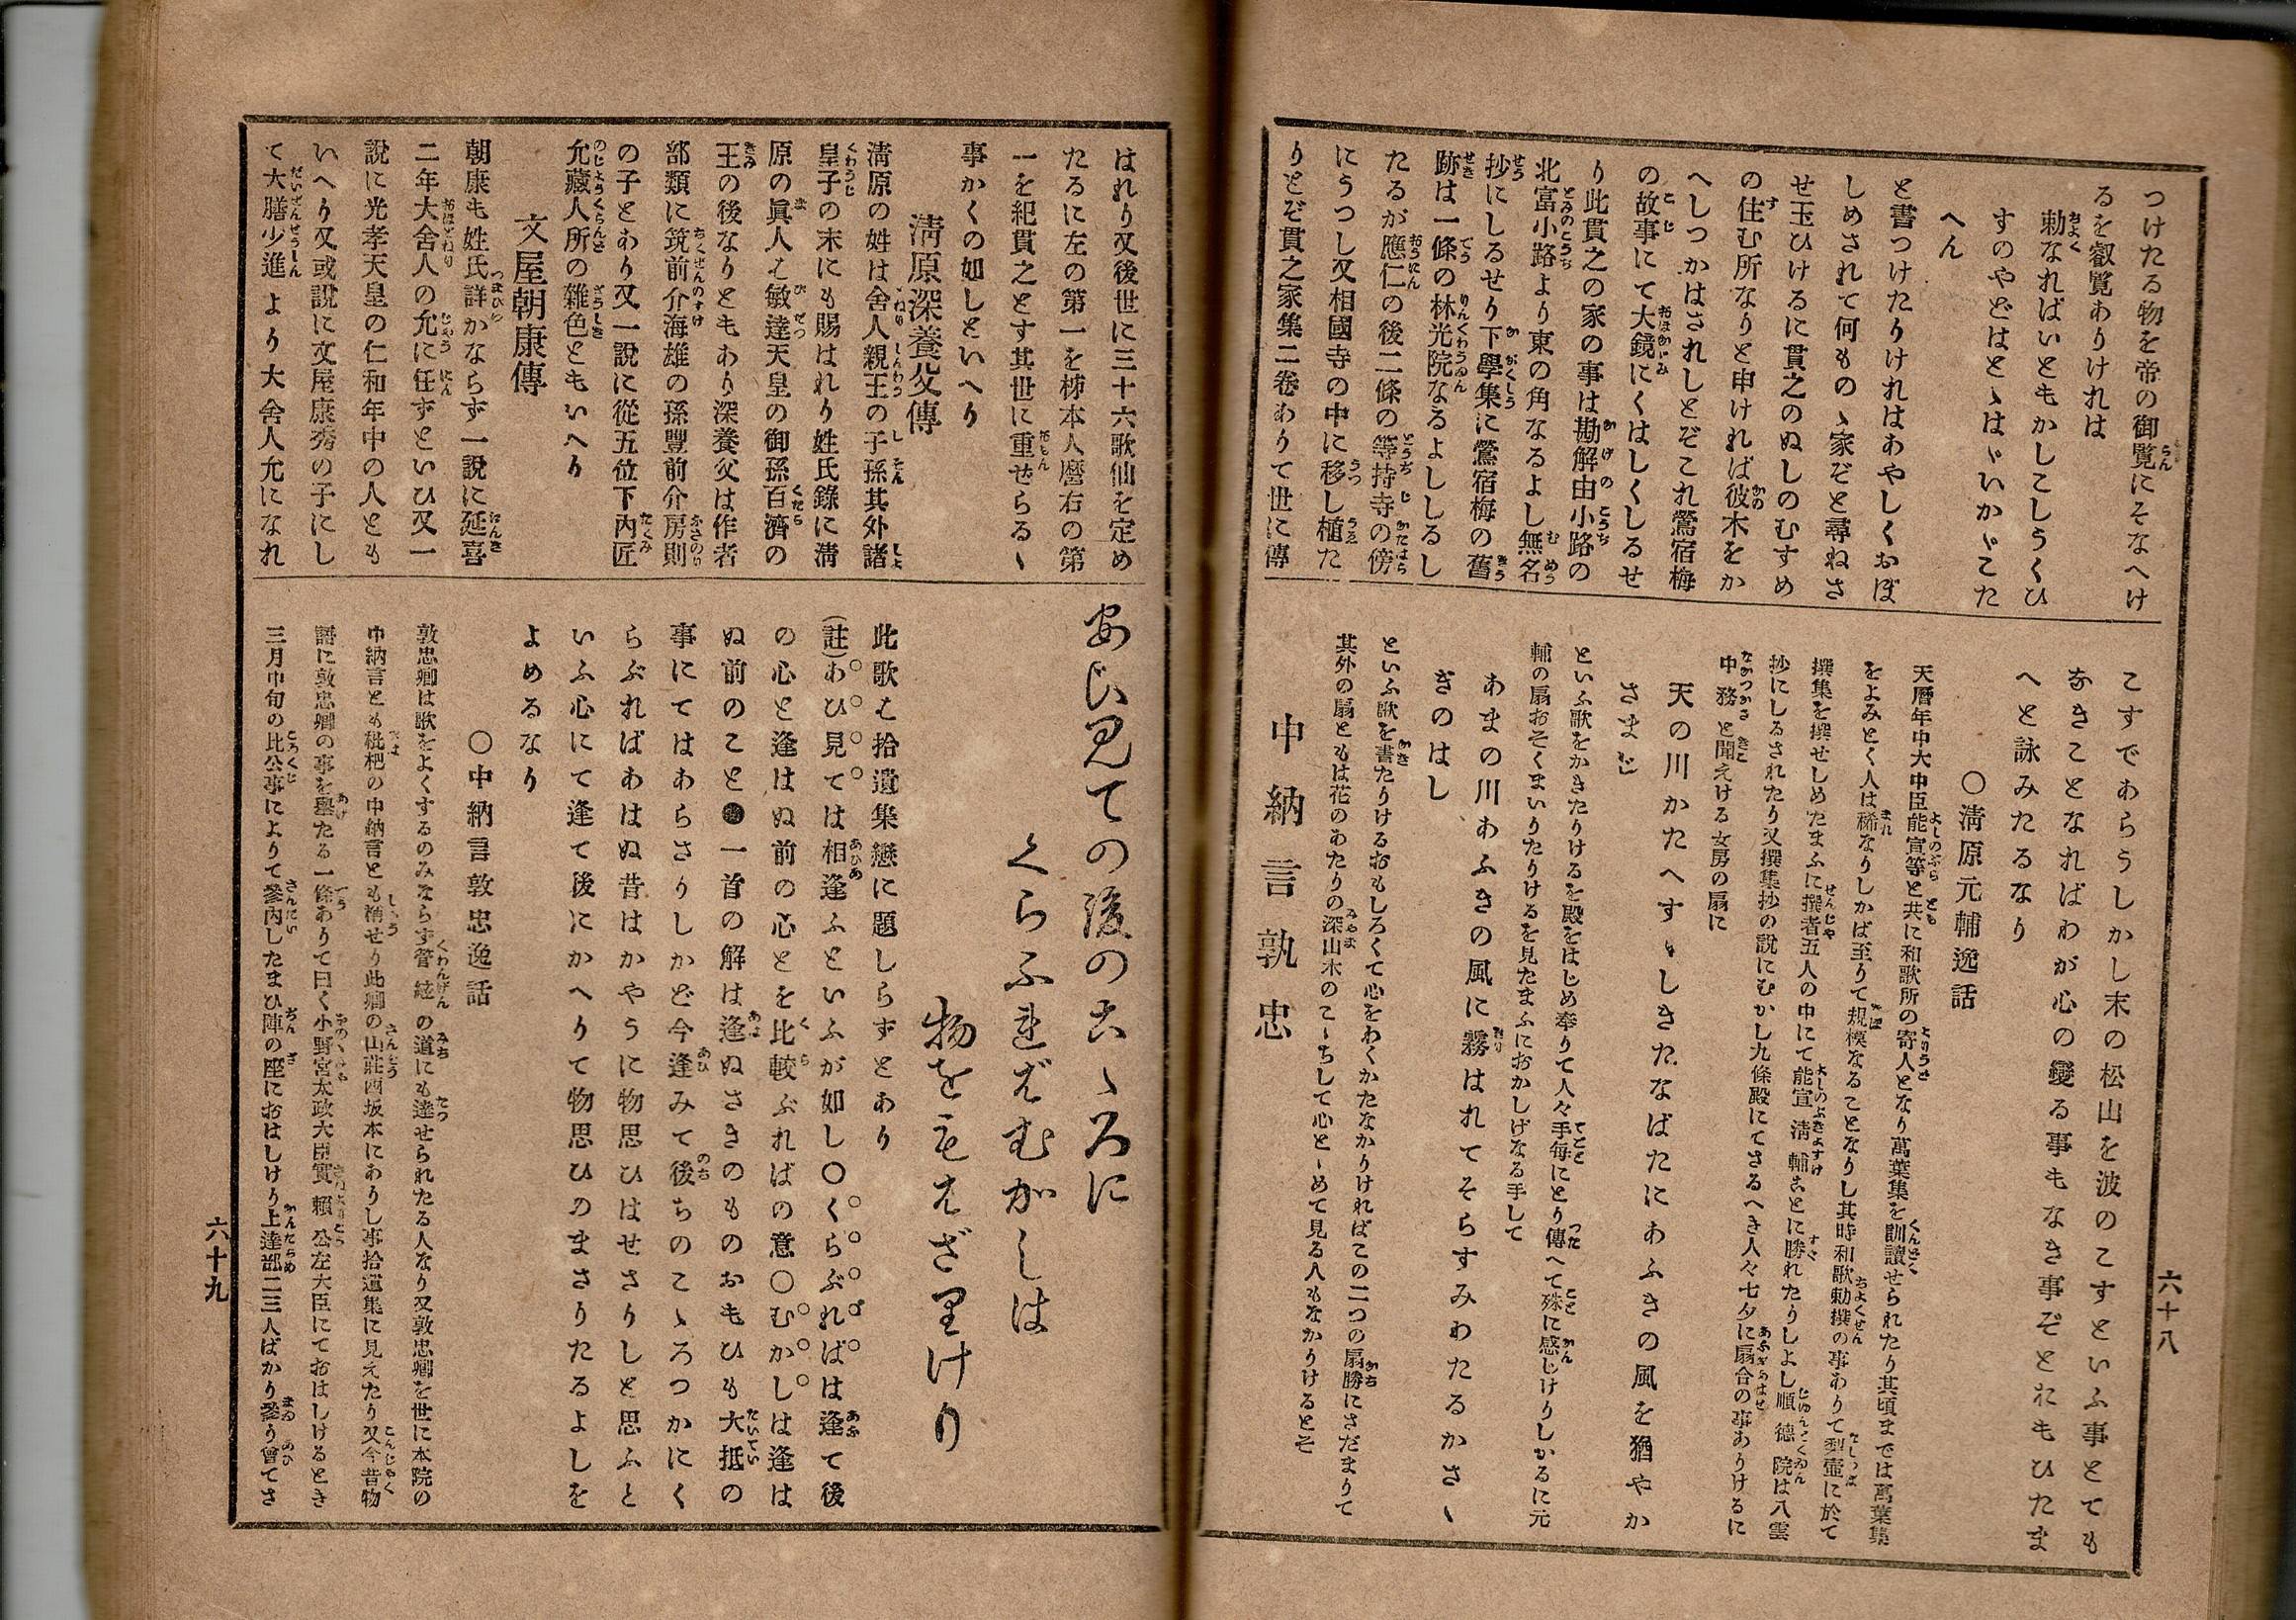 つけたる物を帝の御覧にそなへけ
るを叡覧ありけれは
勅なればいともかしこしうくひ
すのやどはとゝはゞいかゞこた
へん
と書つけたりけれはあやしくおぼ
しめされて何ものゝ家ぞと尋ねさ
せ玉ひけるに貫之のぬしのむすめ
の住む所なりと申ければ彼木をか
へしつかはされしとぞこれ鶯宿梅
の故事にて大鏡にくはしくしるせ
り此貫之の家の事は勘解由小路の
北富小路より東の角なるよし無名
抄にしるせり下學集に鶯宿梅の舊
跡は一條の林光院なるよししるし
たるが應仁の後二條の等持寺の傍
にうつし又相國寺の中に移し植た
りとぞ貫之家集二卷ありて世に傳
こすであらうしかし末の松山を波のこすといふ事とても
なきことなればわが心の變る事もなき事ぞとおもひたま
へと詠みたるなり
〇淸原元輔逸話
天暦年中大中臣能宣等と共に和歌所の寄人となり萬葉集を訓讀せられたり其頃までは萬葉集
をよみとく人は稀なりしかば至りて規模なることなりし其時和歌勅撰の事ありて梨壷に於て
撰集を撰せしめたまふに撰者五人の中にて能宣淸輔ことに勝れたりしよし順德院は八雲
抄にしるされたり又撰集抄の説にむかし九條殿にてさるへき人々七夕に扇合の事ありけるに
中務と聞えける女房の扇に
天の川かたへすゞしきたなばたにあふきの風を猶やか
さまし
といふ歌をかきたりけるを殿をはじめ奉りて人々手毎にとり傳へて殊に感じけりしかるに元
輔の扇おそくまいりたりけるを見たまふにおかしげなる手して
あまの川あふきの風に霧はれてそらすみわたるかさゝ
ぎのはし
といふ歌を書たりけるおもしろくて心をわくかたなかりければこの二つの扇勝にさだまりて
其外の扇ともは花のあたりの深山木のこゝちして心とゝめて見る人もなかりけるとそ
中納言敦忠
六十八
はれり又後世に三十六歌仙を定め
たるに左の第一を柹本人麿右の第
一を紀貫之とす其世に重ぜらるゝ
事かくの如しといへり
淸原深養父傳
淸原の姓は舍人親王の子孫其外諸
皇子の末にも賜はれり姓氏錄に淸
原の眞人は敏達天皇の御孫百濟の
王の後なりともあり深養父は作者
部類に筑前介海雄の孫豐前介房則
の子とあり又一説に從五位下內匠
允藏人所の雜色ともいへり
文屋朝康傳
朝康も姓氏詳かならず一説に延喜
二年大舍人の允に任ずといひ又一
説に光孝天皇の仁和年中の人とも
いへり又或説に文屋康秀の子にし
て大膳少進より大舍人允になれ
あひ見ての後のこゝろに
くらふればむかしは
物をもはざりけり
此歌は拾遺集戀に題しらずとあり
(註)あひ見ては相逢ふといふが如し〇くらぶればは逢て後
の心と逢はぬ前の心とを比較ぶればの意〇むかしは逢は
ぬ前のこと●一首の解は逢ぬさきのものおもひも大抵の
事にてはあらさりしかど今逢みて後ちのこゝろつかにく
らぶればあはぬ昔はかやうに物思ひはせさりしと思ふと
いふ心にて逢て後にかへりて物思ひのまさりたるよしを
よめるなり
〇中納言敦忠逸話
敦忠卿は歌をよくするのみならず管絃の道にも達せられたる人なり又敦忠卿を世に本院の
中納言とも枇杷の中納言とも稱せり此卿の山莊西坂本にありし事拾遺集に見えたり又今昔物
語に敦忠卿の事を擧たる一條ありて曰く小野宮太政大臣實賴公左大臣にておはしけるとき
三月中旬の比公事によりて參內したまひ陣の座におはしけり上達部二三人ばかり參り會てさ
六十九